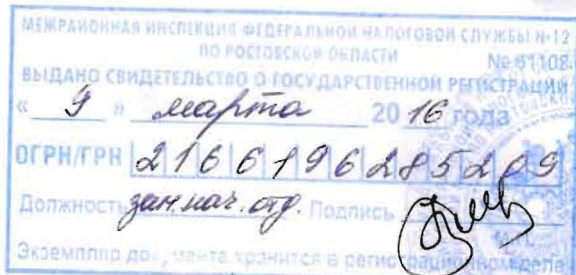 МЕЖРАЙОННАЯ ИНСПЕКЦИЯ ФЕДЕРАЛЬНОЙ НАЛОГОВОЙ СЛУЖБЫ №12
ПО РОСТОВСКОЙ ОБЛАСТИ
№ 61108
ВЫДАНО СВИДЕТЕЛЬСТВО О ГОСУДАРСТВЕННОЙ РЕГИСТРАЦИИ
« 9 » марта 20 16 года
ОГРН/ГРН 2166196285209
Должность зам.нач.отд. Подпись
Экземпляр документа хранится в регистрационном деле